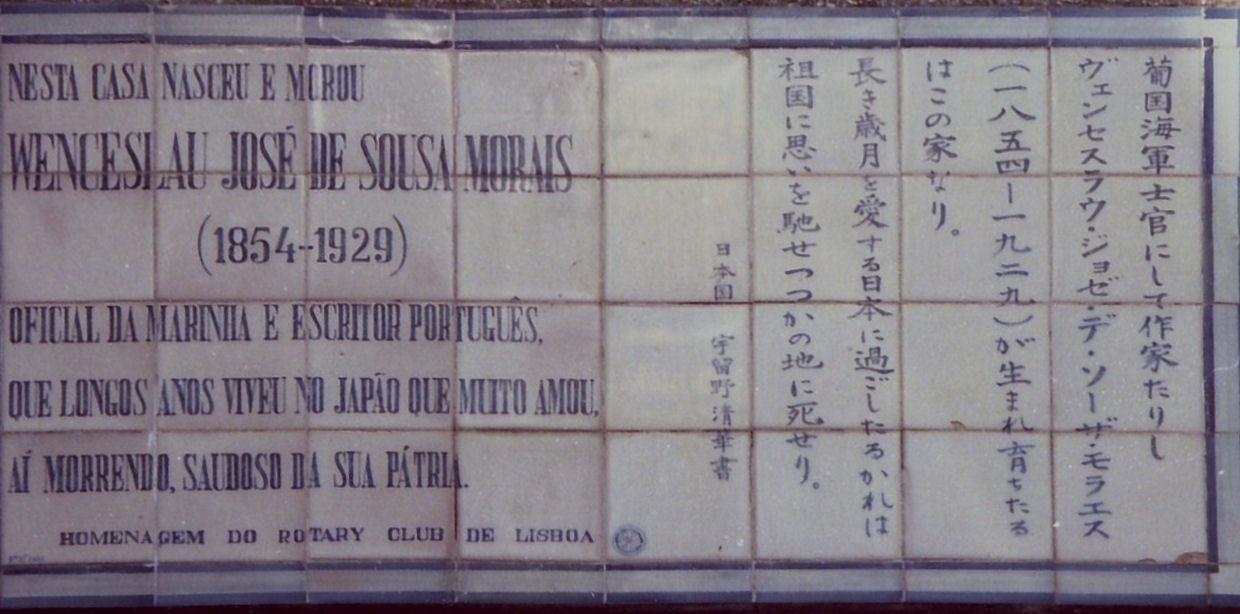 NESTA CASA NASCEU E MOROU
WENCESLAU JOSÉ DE SOUSA MORAIS
(1854-1929)
OFICIAL DA MARINHA E ESCRITOR PORTUGUÊS,
QUE LONGOS ANOS VIVEU NO JAPÃO QUE MUITO AMOU,
AÍ MORRENDO, SAUDOSO DA SUA PÁTRIA.
HOMENAGEM DO ROTARY CLUB DE LISBOA
葡国海軍士官にして作家たりし
ヴェンセスラウ・ジョゼ・デ・ソーザ・モラエス
(一八五四ー一九二九)が生まれ育ちたる
はこの家なり。
長き歳月を愛する日本に過ごしたるかれは
祖国に思いを馳せつつかの地に死せり。
日本国 宇留野清華書